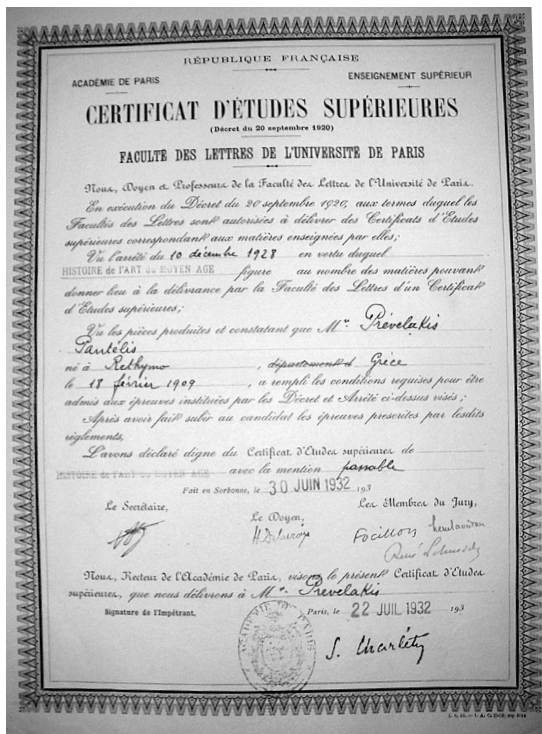 RÉPUBLIQUE FRANÇAISE
ACADÉMIE DE PARIS
ENSEIGNEMENT SUPÉRIEUR
CERTIFICAT D'ÉTUDES SUPÉRIEURES
(Décret du 20 septembre 1920)
FACULTÉ DES LETTRES DE L'UNIVERSITÉ DE PARIS
Nous, Doyen et Professeurs de la Faculté des Lettres de l'Université de Paris.
En exécution du Décret du 20 septembre 1920, aux termes duquel les
Facultés des Lettres sont autorisées à délivrer des Certificats d'Etudes
supérieures correspondant aux matières enseignées par elles;
Vu l'arrêté du 10 décembre 1928 en vertu duquel
HISTOIRE de l'ART du MOYEN AGE figure au nombre des matières pouvant
donner lieu à la délivrance par la Faculté des Lettres d'un Certificat
d'Etudes supérieures;
Vu les pièces produites et constatant que Mr Prévelakis
Pantélis
né à Rethymo, département d Grèce
le 18 février 1909, a rempli les conditions requises pour être
admis aux épreuves instituées par les Décret et Arrêté ci-dessus visés;
Après avoir fait subir au candidat les épreuves prescrites par lesdits
règlements,
L'avons déclaré digne du Certificat d'Etudes supérieures de
HISTOIRE de l'ART du MOYEN AGE avec la mention passable
Fait en Sorbonne, le 30 JUIN 1932 193
Le Secrétaire,
Le Doyen,
Les Membres du Jury,
H Delacroix
Focillon
René Schneider
Nous, Recteur de l'Académie de Paris, visons le présent Certificat d'Etudes
supérieures, que nous délivrons à Mr Prevelakis
Signature de l'Impétrant.
Paris, le 22 JUIL 1932 193
ACADÉMIE DE PARIS
S. Charléty